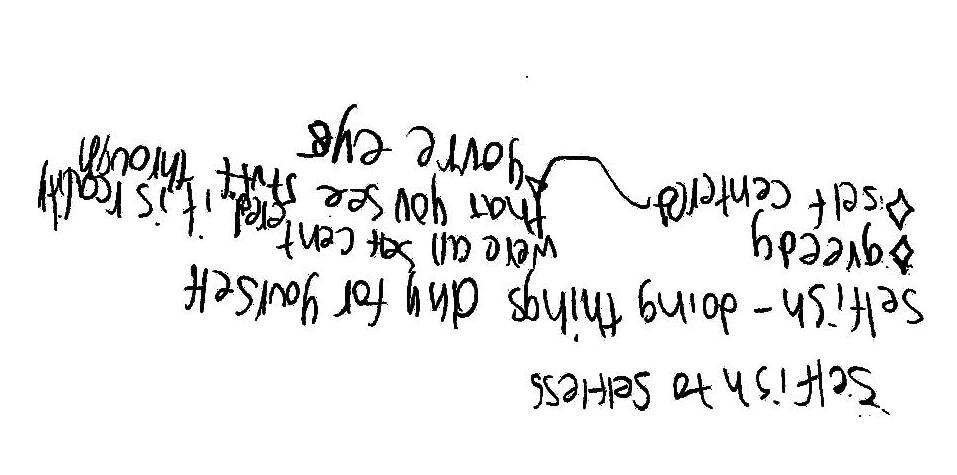 Selfish to selfless
Selfish - doing things only for yourself
◇ greedy
◇ self centered
we're all self cent
ered. it is reality
that you see stuff through
you're eyes